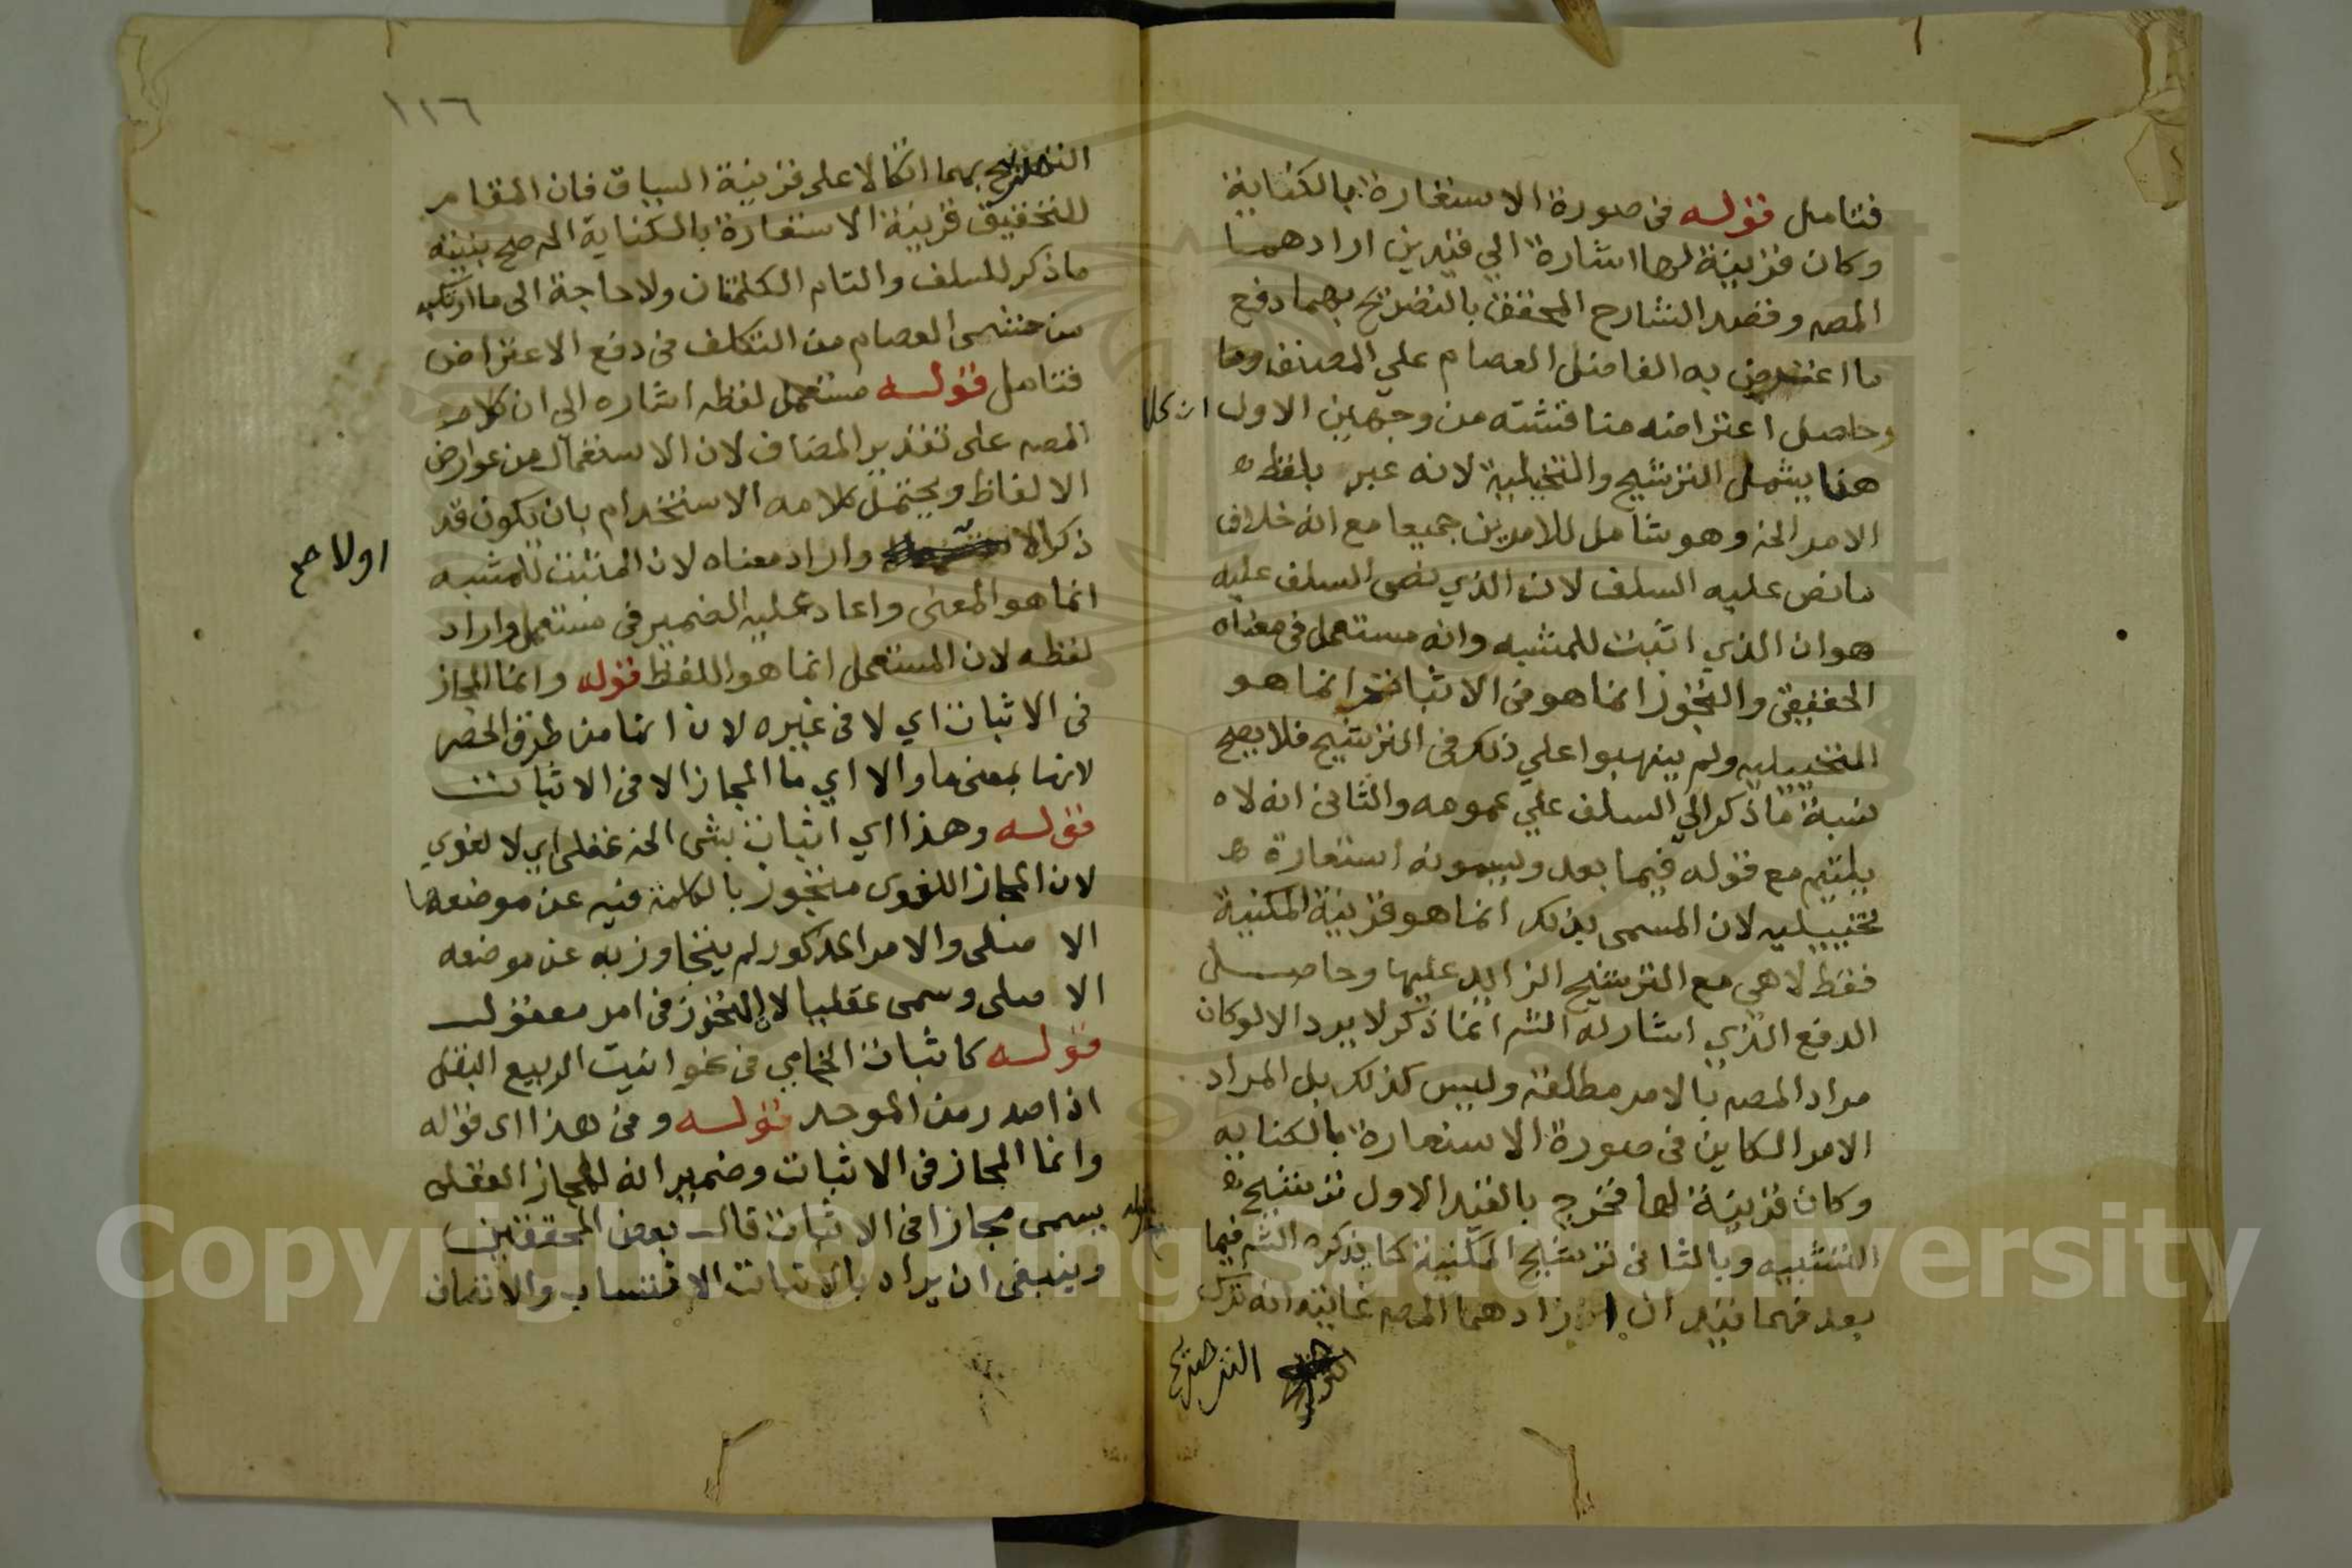 فتامل قوله في صورة الاستعارة بالكناية
وكان قرينة لها اشارة الي قيدين ارادهما
المصـ وقصد الشارح المحقق بالتصريح بهما دفع
ما اعترض به الفاضل العصام علي المصنف وما
وحاصل اعتراضه مناقشته من وجهين الاول ان كلا
هنا يشمل الترشيح والتخيلية لانه عبر بلفظ
الامر الخ وهو شامل للامرين جميعا مع انه خلاف
ما نص عليه السلف لان الذي نص السلف عليه
هو ان الذي اثبت للمشبه وانه مستعمل في معناه
الحقيقي والتجوز انما هو في الاثبات انما هو
التخييليه ولم ينهبوا علي ذلك في الترشيح فلا يصح
نسبة ما ذكر الي السلف علي عمومه والثاني انه لا
يلتئم مع قوله فيما بعد ويسمونه استعارة
تخييليه لان المسمى بذلك انما هو قرينة المكنية
فقط لا هي مع الترشيح الزايد عليها وحاصل
الدفع الذي اشار له الشـ انما ذكر لا يرد الا لو كان
مراد المصـ بالامر مطلقه وليس كذلك بل المراد
الامر الكاين في صورة الاستعارة بالكنايه
وكان قرينة لها فخرج بالقيد الاول ترشيح
التشبيه وبالثاني ترشيح المكنية كما يذكره الشـ فيما
بعد فهما قيدان ارادهما المصـ غايته انه ترك
التصريح
١١٦
التصريح بهما اتكالا على قرينة السياق فان المقام
للتحقيق قرينة الاستعارة بالكناية المـ صح بنيته
ما ذكر للسلف والتام الكلمتان ولا حاجة الى ما ارتكبه
من حشى العصام من التكلف في دفع الاعتراض
فتامل قوله مستعمل لفظه اشاره الى ان كلام
المصـ على تقدير المضاف لان الاستعمال من عوارض
الالفاظ ويحتمل كلامه الاستخدام بان يكون قد
ذكر الا واراد معناه لان المثبت للمشبه
اولا صح
انما هو المعنى واعاد عليه الضمير في مستعمل واراد
لفظه لان المستعمل انما هو اللفظ قوله وانما المجاز
في الاثبات اي لا في غيره لان انما من طرق الحصر
لانها بمعنى ما والا اي ما المجاز الا في الاثبات
قوله وهذا اي اثبات شى الخ عقلي اي لا لغوي
لان المجاز اللغوى متجوز بالكلمة فيه عن موضعها
الاصلى والامر المذكور لم يتجاوز به عن موضعه
الاصلى وسمى عقليا لان التجوز في امر معقول
قوله كاثبات الخامي في نحو انيت الربيع البقل
اذا صدر من الموحد قوله وفي هذا اى قوله
وانما المجاز في الاثبات وضمير انه للمجاز العقلى
يسمى مجازا في الاثبات قال بعض المحققين
وينبغى ان يراد بالاثبات الانتساب والاتصاف
Copyright © King Saud University